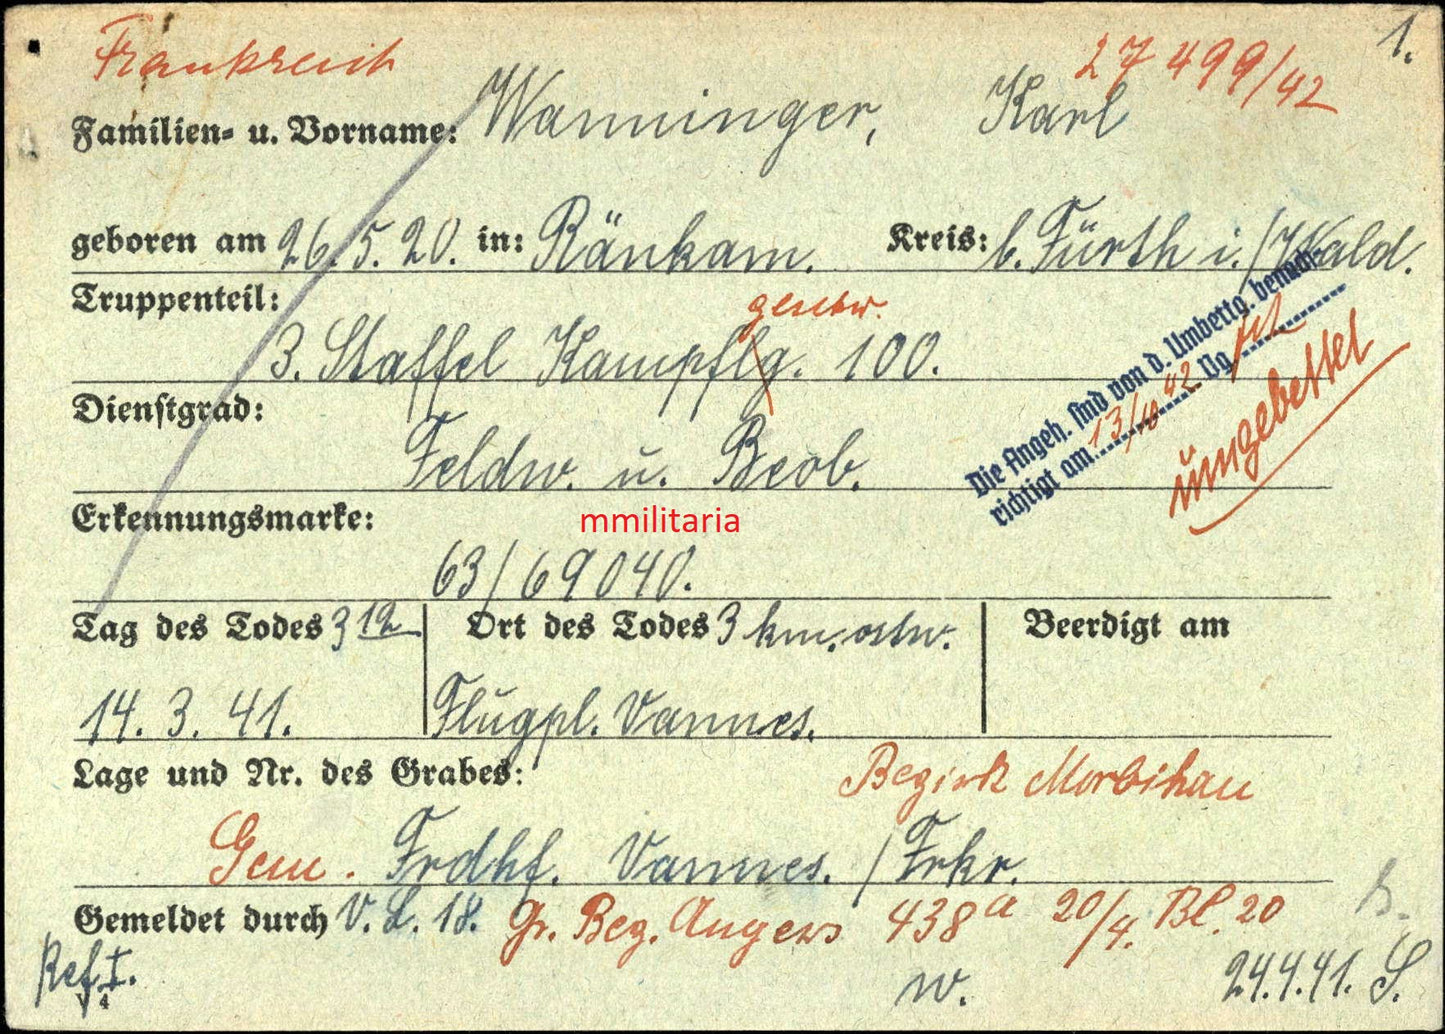 1.
Frankreich
27499/42
Familien- u. Vorname: Wanninger, Karl
geboren am 26.5.20. in: Ränkam. Kreis: b. Fürth i./Wald.
Truppenteil:
geschw.
3. Staffel Kampflg. 100.
Die Angeh. sind von d. Umbettg. benach-
richtigt am 13/10 42 Vg.
umgebettet
Dienstgrad:
Feldw. u. Beob.
Erkennungsmarke:
mmilitaria
63/69040.
Tag des Todes Ort des Todes 3 km. ostw. Beerdigt am
14.3.41. Flugpl. Vannes.
Lage und Nr. des Grabes:
Bezirk Morbihan
Gem. Frdhf. Vannes. / Frkr.
Gemeldet durch V.L.18. Gr. Bez. Angers 438a 20/4. Bl. 20
Ref. I.
V 4
w.
24.4.41. S.